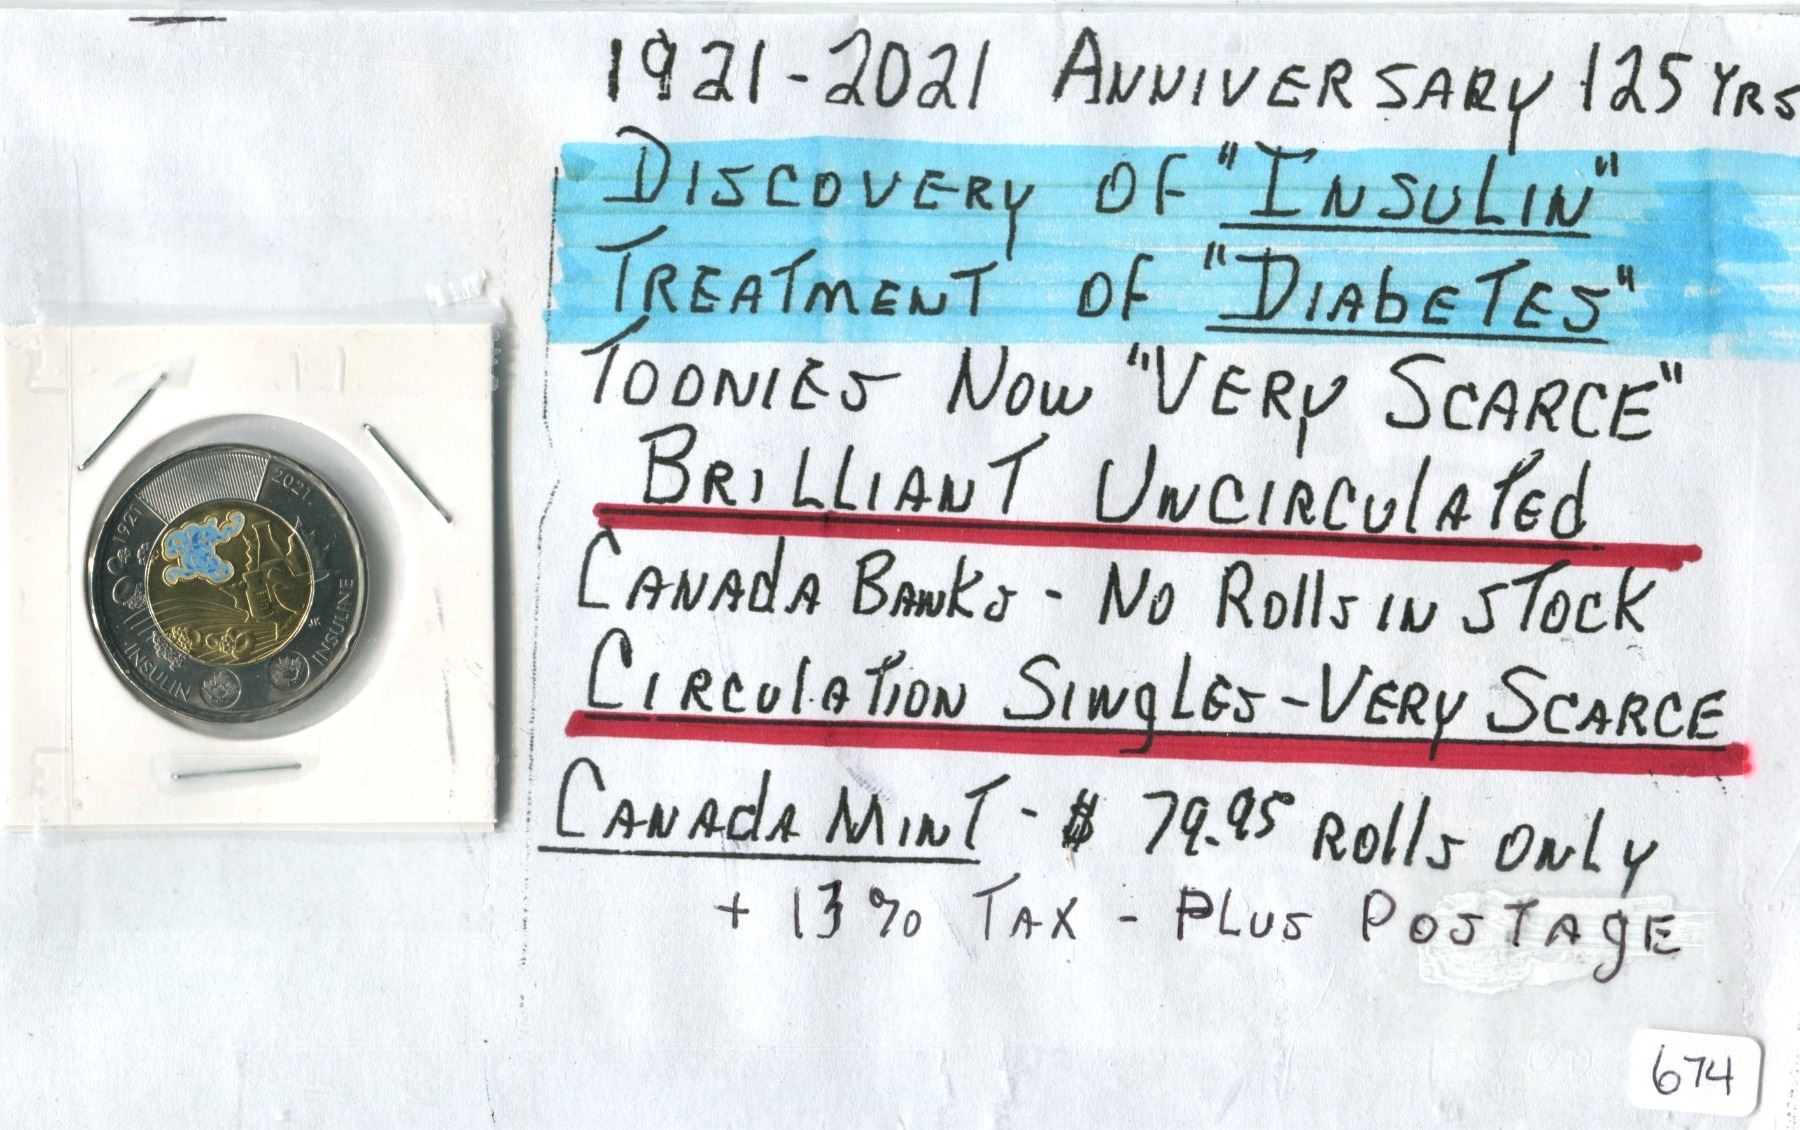 1921-2021 ANNIVERSARY 125 YRS
DISCOVERY OF "INSULIN"
TREATMENT OF "DIAbETES"
TOONIES NOW "VERY SCARCE"
BRILLIANT UNCIRCULATEd
CANAdA BANKS - NO ROllS IN STOCK
CIRCULATION SINgLES - VERY SCARCE
CANAdA MINT - $ 79.95 ROllS ONLY
+ 13% TAX - PLUS POSTAgE
674
1921
2021
INSULIN
INSULINE
JK